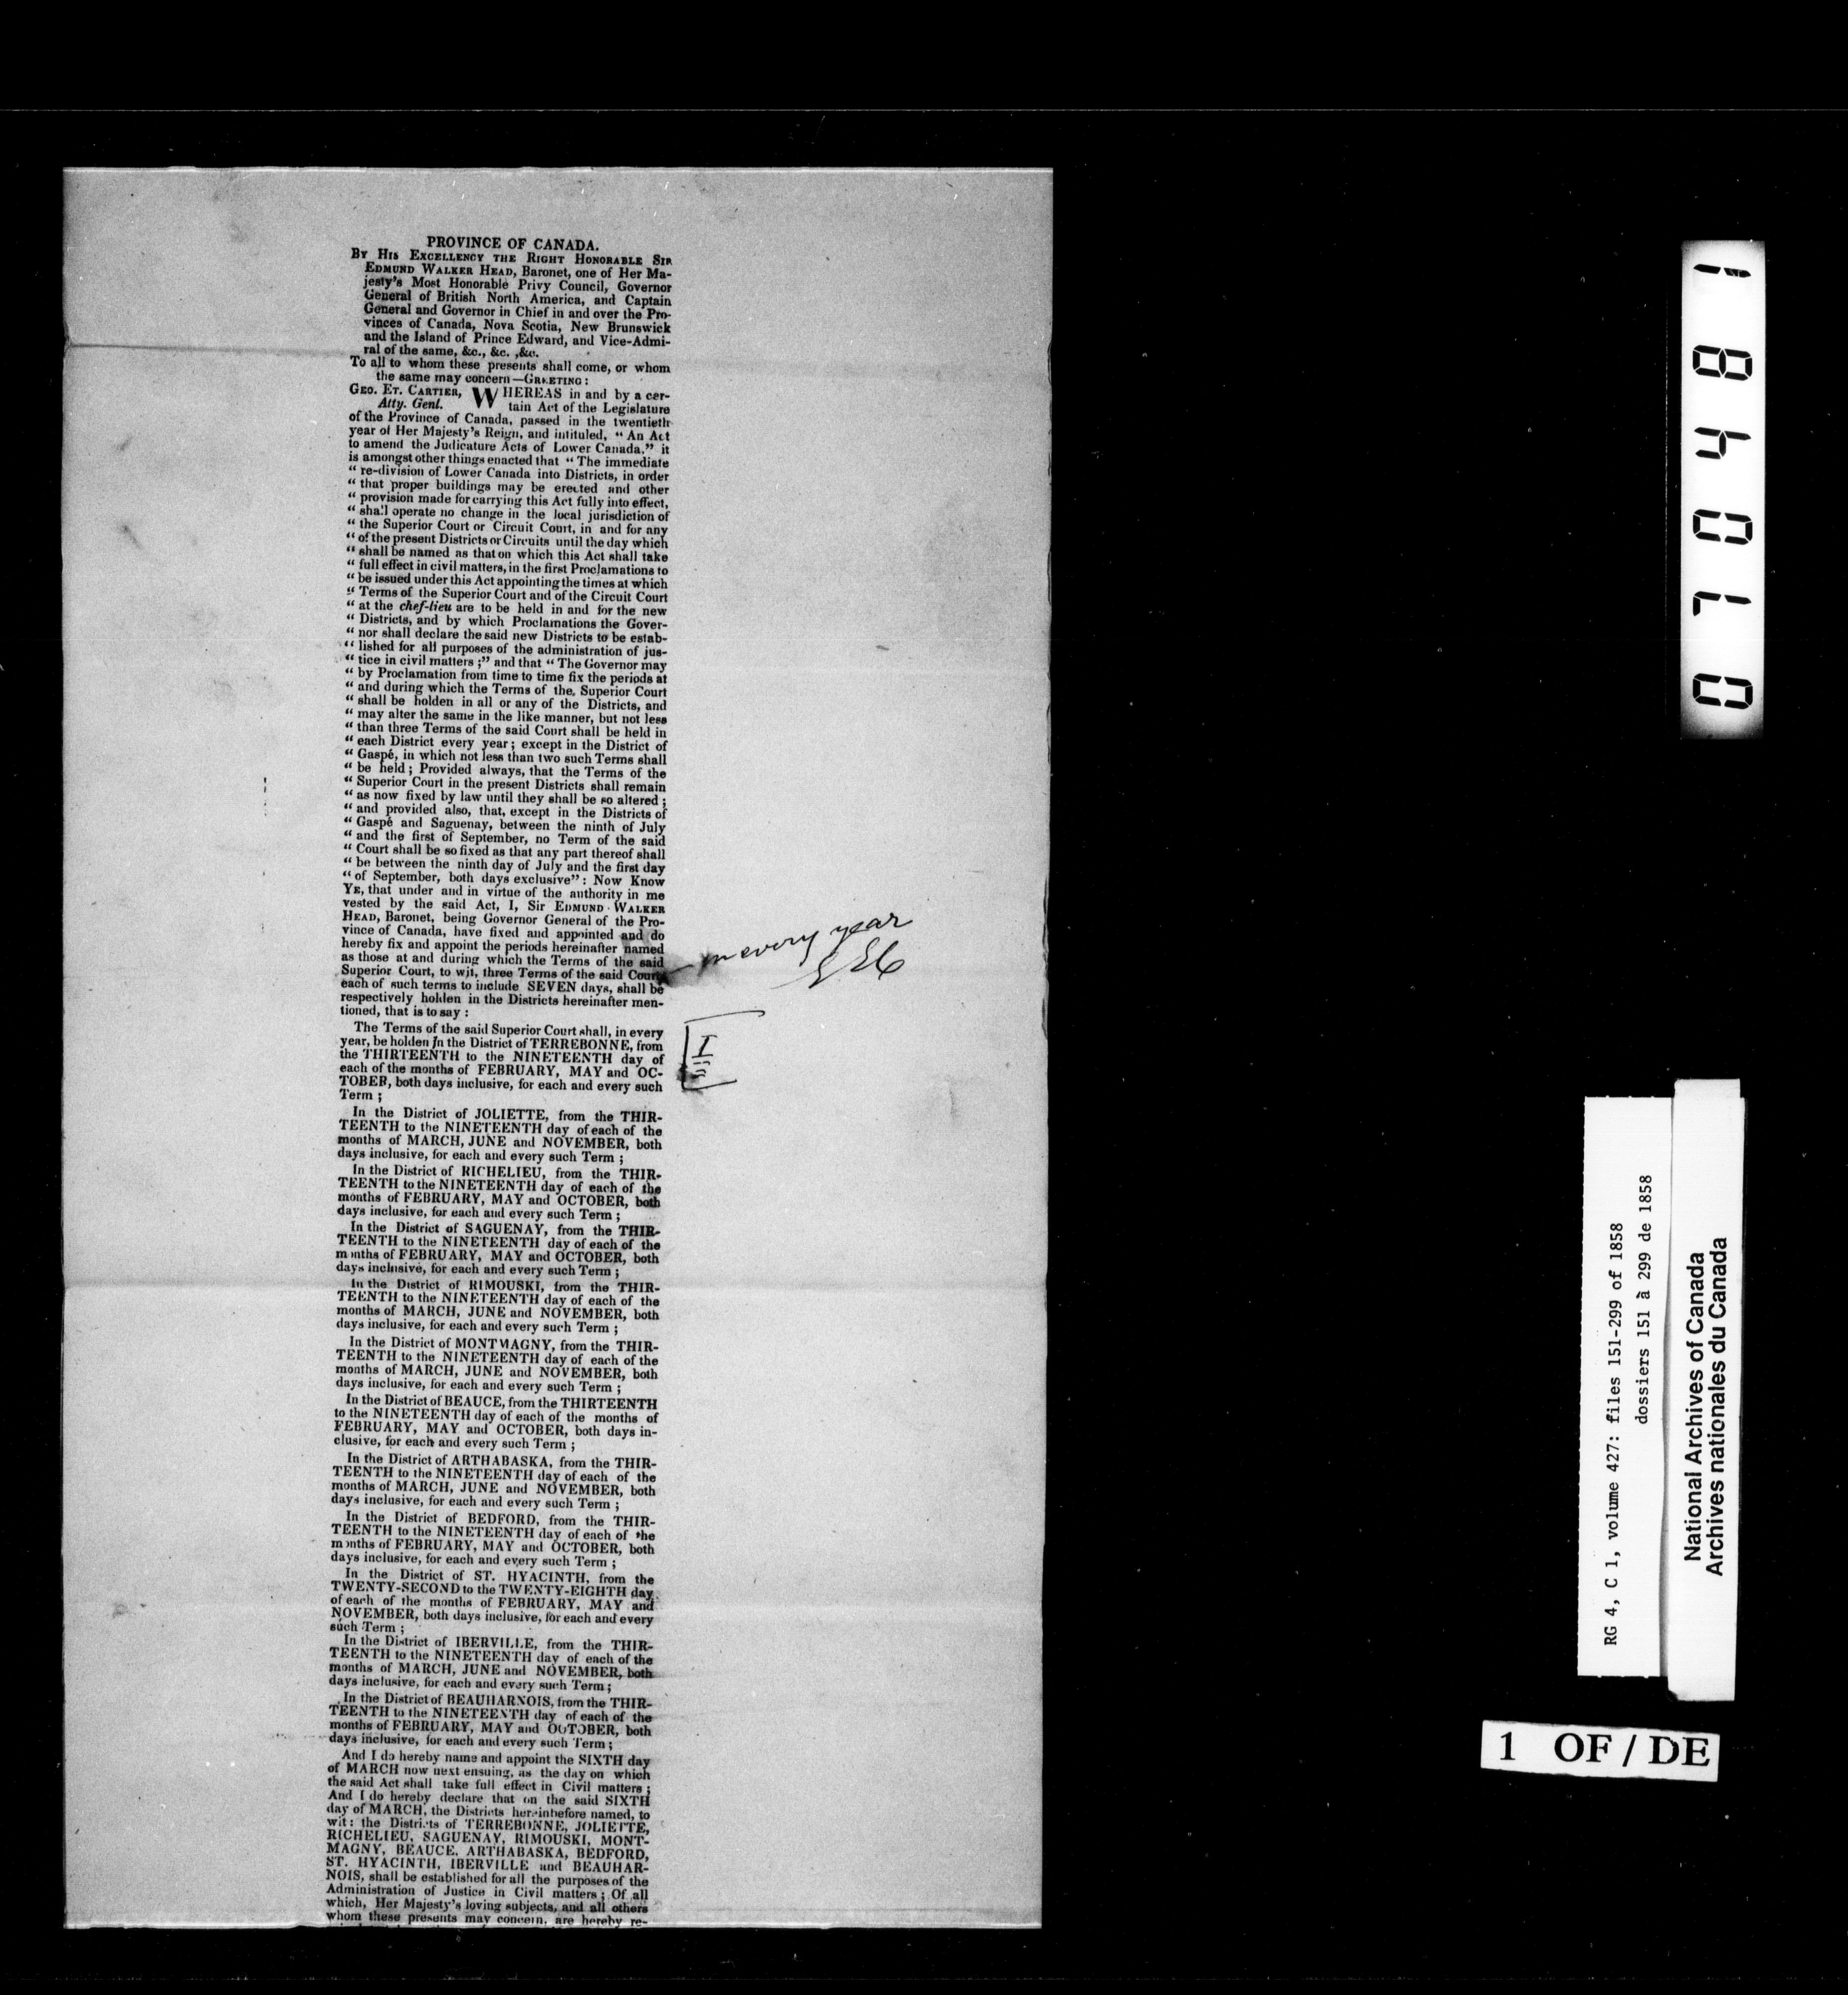 PROVINCE OF CANADA.
BY HIS EXCELLENCY THE RIGHT HONORABLE SIR
EDMUND WALKER HEAD, Baronet, one of Her Ma-
jesty's Most Honorable Privy Council, Governor
General of British North America, and Captain
General and Governor in Chief in and over the Pro-
vinces of Canada, Nova Scotia, New Brunswick
and the Island of Prince Edward, and Vice-Admi-
ral of the same, &c., &c. ,&c.
To all to whom these presents shall come, or whom
the same may concern—GREETING:
GEO. ET. CARTIER, WHEREAS in and by a cer-
Atty. Genl. tain Act of the Legislature
of the Province of Canada, passed in the twentieth
year of Her Majesty's Reign, and intituled, "An Act
to amend the Judicature Acts of Lower Canada," it
is amongst other things enacted that "The immediate
"re-division of Lower Canada into Districts, in order
"that proper buildings may be erected and other
"provision made for carrying this Act fully into effect,
"shall operate no change in the local jurisdiction of
"the Superior Court or Circuit Court, in and for any
"of the present Districts or Circuits until the day which
"shall be named as that on which this Act shall take
"full effect in civil matters, in the first Proclamations to
"be issued under this Act appointing the times at which
"Terms of the Superior Court and of the Circuit Court
"at the chef-lieu are to be held in and for the new
"Districts, and by which Proclamations the Gover-
"nor shall declare the said new Districts to be estab-
"lished for all purposes of the administration of jus-
"tice in civil matters;" and that "The Governor may
"by Proclamation from time to time fix the periods at
"and during which the Terms of the, Superior Court
"shall be holden in all or any of the Districts, and
"may alter the same in the like manner, but not less
"than three Terms of the said Court shall be held in
"each District every year; except in the District of
"Gaspé, in which not less than two such Terms shall
"be held; Provided always, that the Terms of the
"Superior Court in the present Districts shall remain
"as now fixed by law until they shall be so altered;
"and provided also, that, except in the Districts of
"Gaspé and Saguenay, between the ninth of July
"and the first of September, no Term of the said
"Court shall be so fixed as that any part thereof shall
"be between the ninth day of July and the first day
"of September, both days exclusive": NOW KNOW
YE, that under and in virtue of the authority in me
vested by the said Act, I, Sir EDMUND WALKER
HEAD, Baronet, being Governor General of the Pro-
vince of Canada, have fixed and appointed and do
hereby fix and appoint the periods hereinafter named
as those at and during which the Terms of the said
Superior Court, to wit, three Terms of the said Court
in every year
each of such terms to include SEVEN days, shall be
respectively holden in the Districts hereinafter men-
tioned, that is to say:
The Terms of the said Superior Court shall, in every
year, be holden in the District of TERREBONNE, from
the THIRTEENTH to the NINETEENTH day of
each of the months of FEBRUARY, MAY and OC-
TOBER, both days inclusive, for each and every such
Term;
I
In the District of JOLIETTE, from the THIR-
TEENTH to the NINETEENTH day of each of the
months of MARCH, JUNE and NOVEMBER, both
days inclusive, for each and every such Term;
In the District of RICHELIEU, from the THIR-
TEENTH to the NINETEENTH day of each of the
months of FEBRUARY, MAY and OCTOBER, both
days inclusive, for each and every such Term;
In the District of SAGUENAY, from the THIR-
TEENTH to the NINETEENTH day of each of the
months of FEBRUARY, MAY and OCTOBER, both
days inclusive, for each and every such Term;
In the District of RIMOUSKI, from the THIR-
TEENTH to the NINETEENTH day of each of the
months of MARCH, JUNE and NOVEMBER, both
days inclusive, for each and every such Term;
In the District of MONTMAGNY, from the THIR-
TEENTH to the NINETEENTH day of each of the
months of MARCH, JUNE and NOVEMBER, both
days inclusive, for each and every such Term;
In the District of BEAUCE, from the THIRTEENTH
to the NINETEENTH day of each of the months of
FEBRUARY, MAY and OCTOBER, both days in-
clusive, for each and every such Term;
In the District of ARTHABASKA, from the THIR-
TEENTH to the NINETEENTH day of each of the
months of MARCH, JUNE and NOVEMBER, both
days inclusive, for each and every such Term;
In the District of BEDFORD, from the THIR-
TEENTH to the NINETEENTH day of each of the
months of FEBRUARY, MAY and OCTOBER, both
days inclusive, for each and every such Term;
In the District of ST. HYACINTH, from the
TWENTY-SECOND to the TWENTY-EIGHTH day
of each of the months of FEBRUARY, MAY and
NOVEMBER, both days inclusive, for each and every
such Term;
In the District of IBERVILLE, from the THIR-
TEENTH to the NINETEENTH day of each of the
months of MARCH, JUNE and NOVEMBER, both
days inclusive, for each and every such Term;
In the District of BEAUHARNOIS, from the THIR-
TEENTH to the NINETEENTH day of each of the
months of FEBRUARY, MAY and OCTOBER, both
days inclusive, for each and every such Term;
And I do hereby name and appoint the SIXTH day
of MARCH now next ensuing, as the day on which
the said Act shall take full effect in Civil matters;
And I do hereby declare that on the said SIXTH
day of MARCH, the Districts hereinbefore named, to
wit: the Districts of TERREBONNE, JOLIETTE,
RICHELIEU, SAGUENAY, RIMOUSKI, MONT-
MAGNY, BEAUCE, ARTHABASKA, BEDFORD,
ST. HYACINTH, IBERVILLE and BEAUHAR-
NOIS, shall be established for all the purposes of the
Administration of Justice in Civil matters; Of all
which, Her Majesty's loving subjects, and all others
whom these presents may concern, are hereby re-
070481
RG 4, C 1, volume 427: files 151-299 of 1858
dossiers 151 à 299 de 1858
National Archives of Canada
Archives nationales du Canada
1 OF / DE